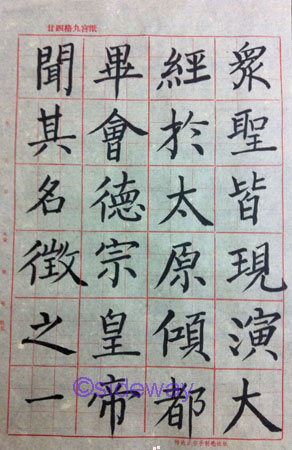 紙宮九格四廿
眾聖皆現演大
經於太原傾都
畢會德宗皇帝
聞其名徵之一
©sideway